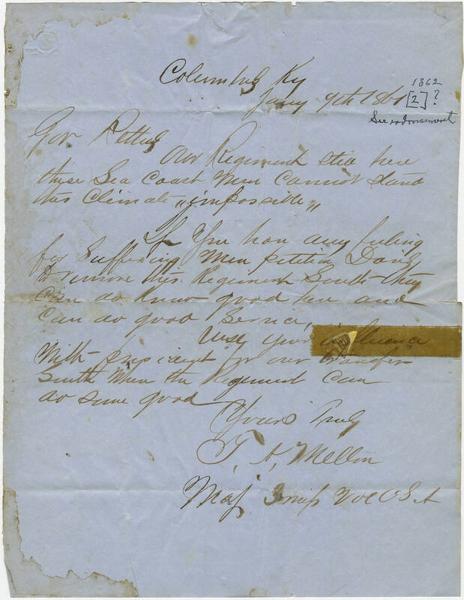 Columbus Ky
Jany 9th 1861
1862
[2]?
See endorsement
Gov Pettus
Our Regiment still here
these Sea Coast Men Cannot stand
this Climate "impossible"
If You have any feeling
for Suffering Men petition Davis
to remove this Regiment South they
Can do know good here and
Can do good Service,
Use your influence
With president for our transfer
South When the Regiment Can
do some good
Yours Truly
T. A. Mellon
Maj 3 Miss Vol C S A